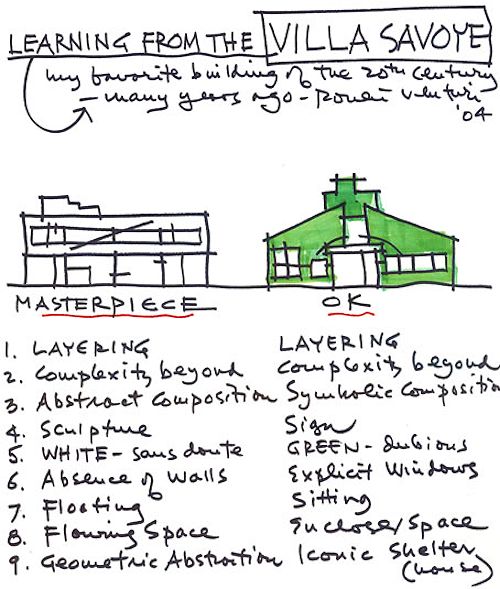 LEARNING FROM THE VILLA SAVOYE
my favorite building of the 20th century
– many years ago – Robert Venturi
'04
MASTERPIECE OK
1. LAYERING LAYERING
2. Complexity beyond Complexity beyond
3. Abstract Composition Symbolic Composition
4. Sculpture Sign
5. WHITE – sans doute GREEN – dubious
6. Absence of Walls Explicit Windows
7. Floating Sitting
8. Flowing Space Enclosed Space
9. Geometric Abstraction Iconic Shelter
(house)